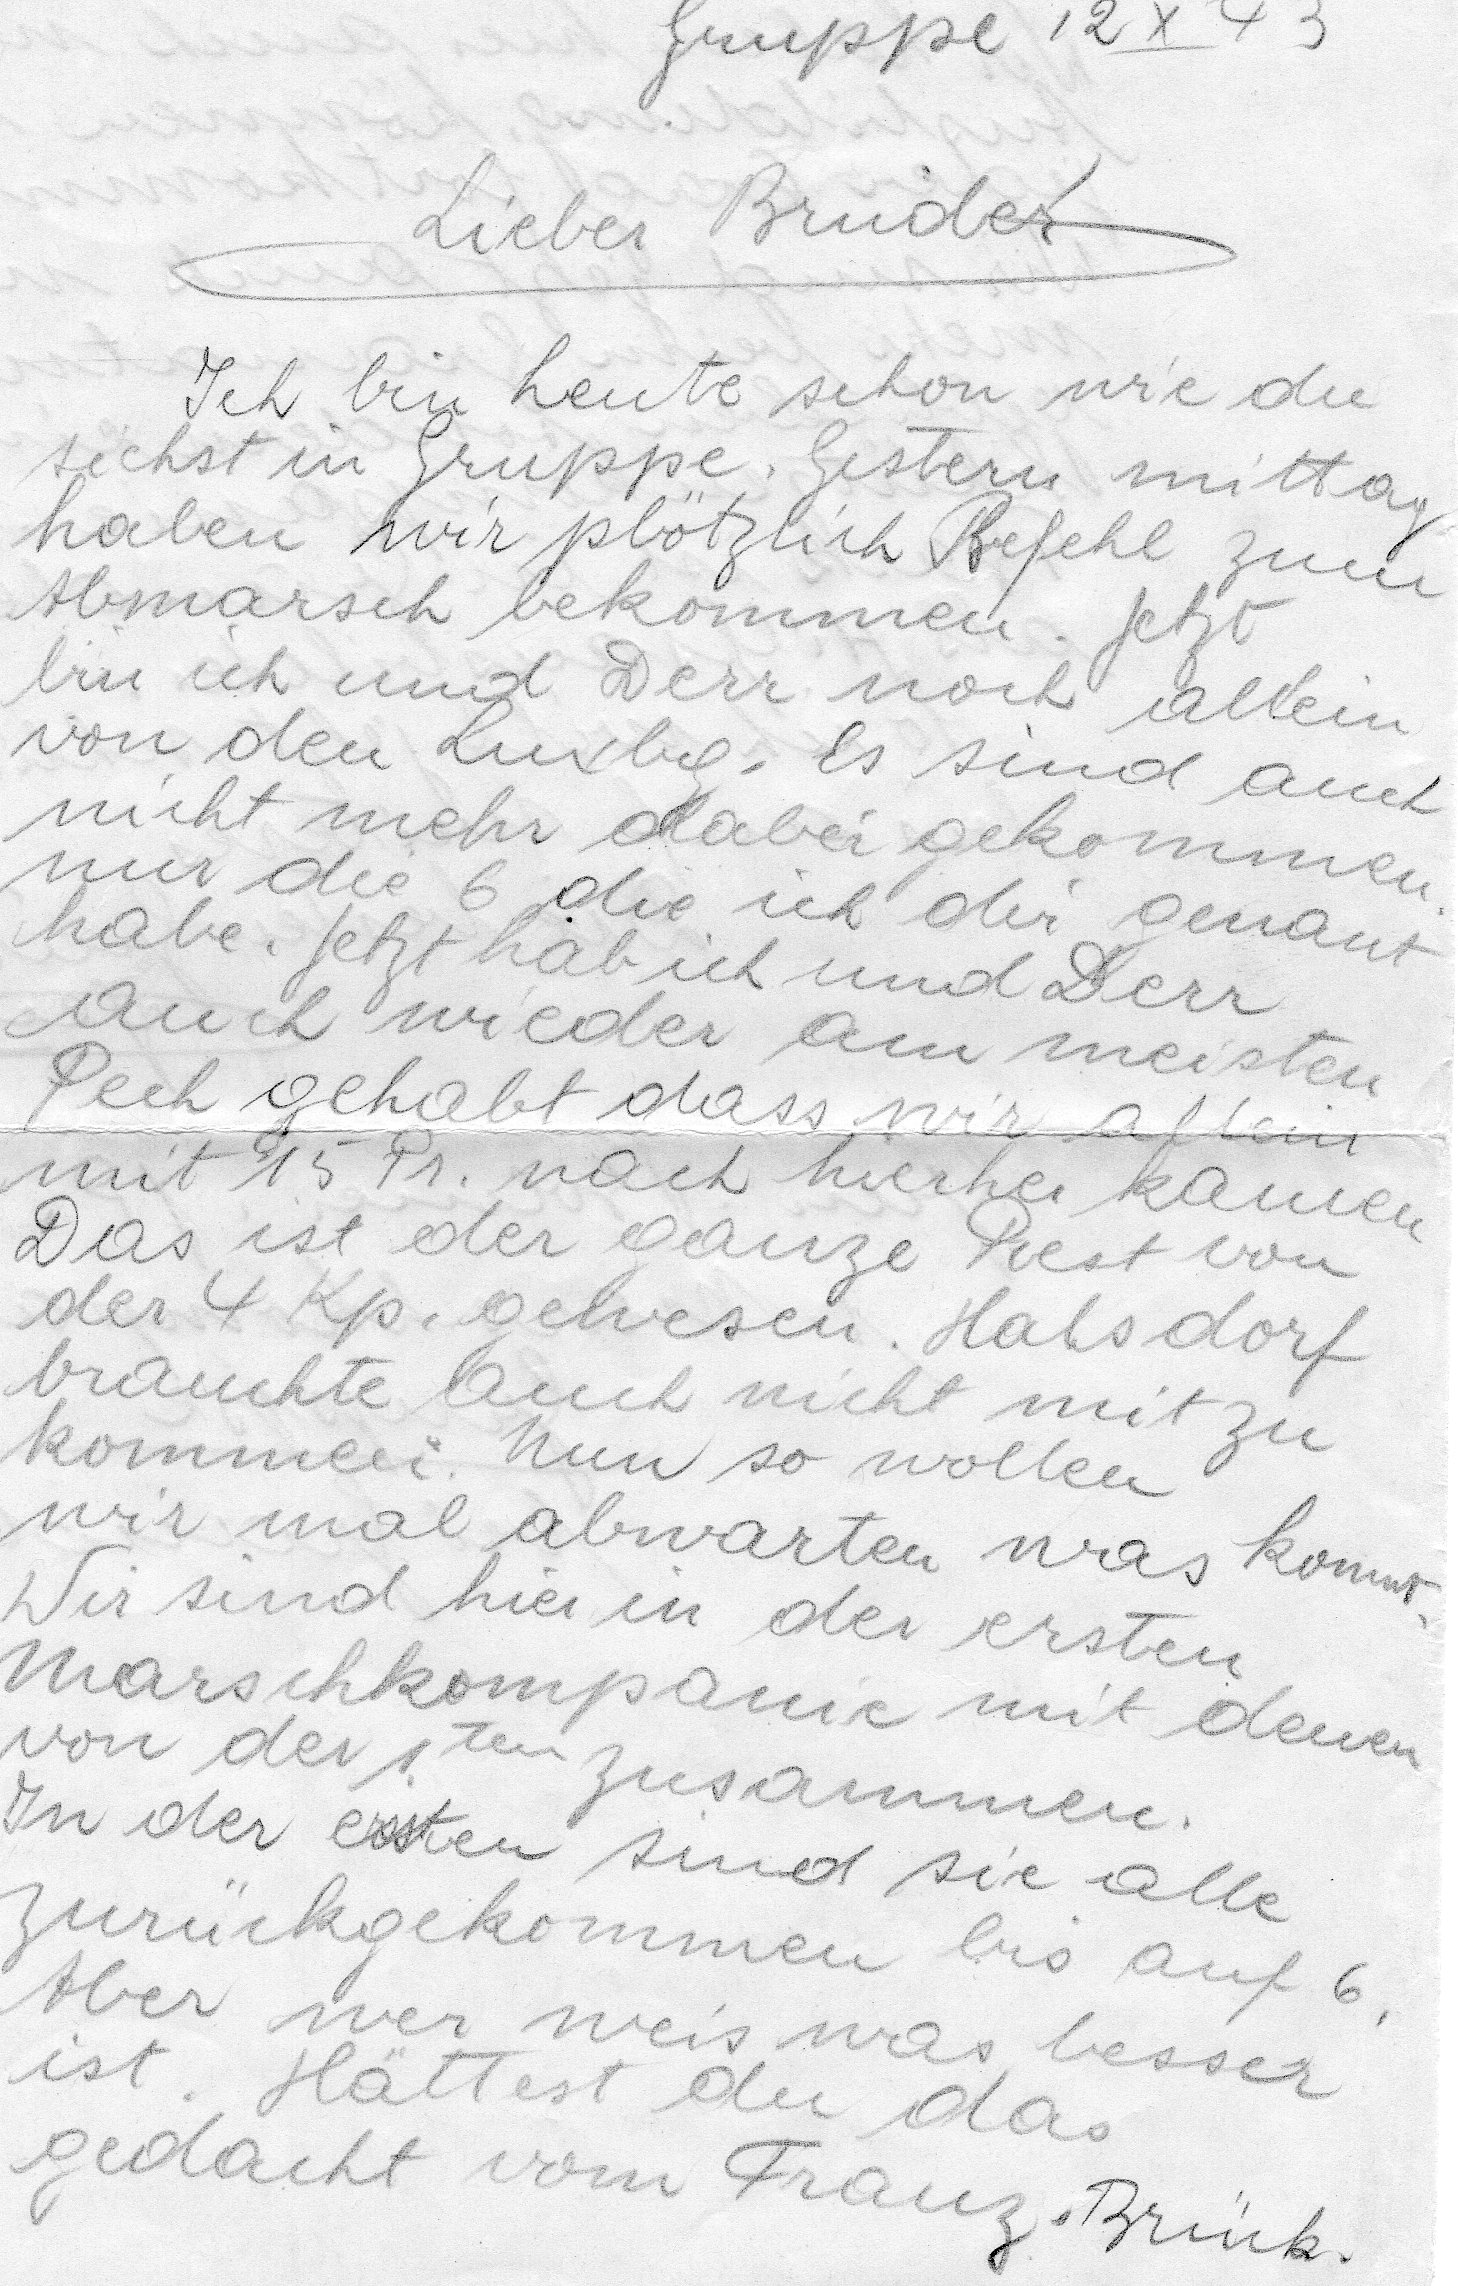 Gruppe 12 X 43
Lieber Bruder
Ich bin heute schon wie du
siehst in Gruppe. Gestern mittag
haben wir plötzlich Befehl zum
Abmarsch bekommen. Jetzt
bin ich und Derr noch allein
von den Luxbg. Es sind auch
nicht mehr dabei gekommen.
nur die 6 die ich dir genant
habe. Jetzt hab ich und Derr
auch wieder am meisten
Pech gehabt dass wir allein
mit 15 Pr. nach hierher kamen
Das ist der ganze Rest von
der 4 Kp. gewesen. Hahsdorf
brauchte auch nicht mitzu
kommen. Nun so wollen
wir mal abwarten was kommt.
Wir sind hier in der ersten
Marschkompanie mit denen
von der 1.ten zusammen.
In der ersten sind sie alle
zurückgekommen bis auf 6.
Aber wer weis was besser
ist. Hättest du das
gedacht vom Franz. Brück.